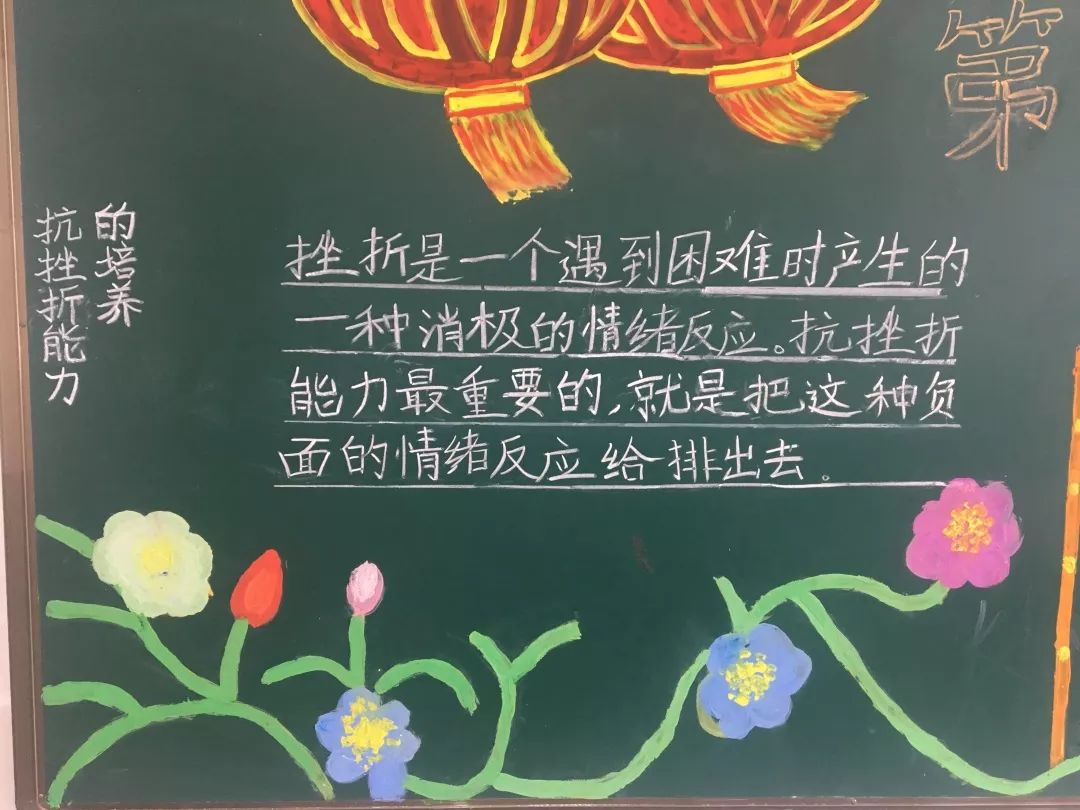 第
抗挫折能力
的培养
挫折是一个遇到困难时产生的
一种消极的情绪反应。抗挫折
能力最重要的,就是把这种负
面的情绪反应给排出去。